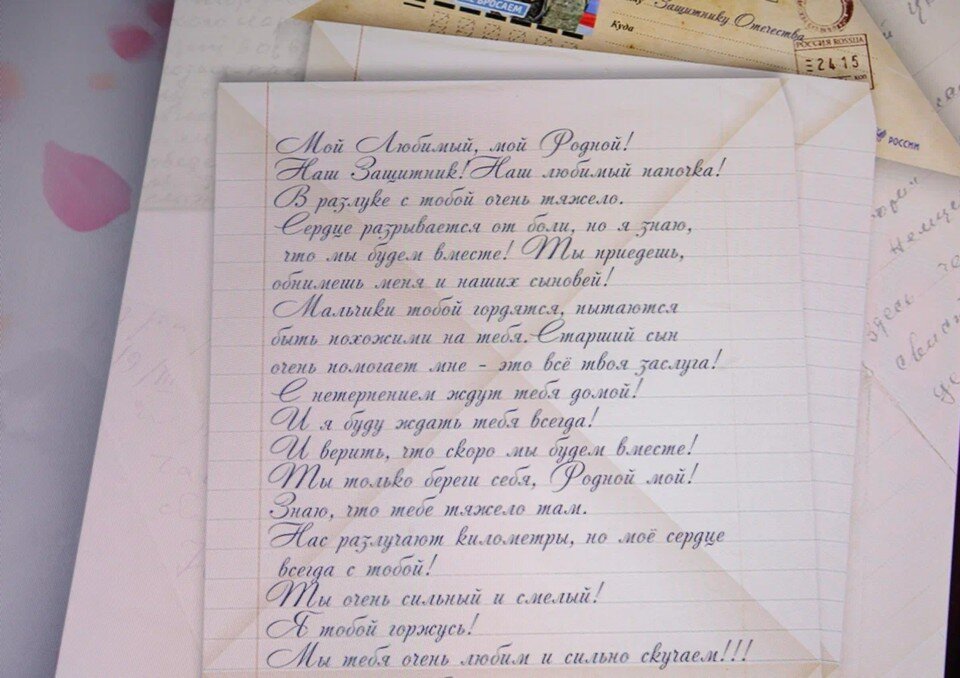 БРОСАЕМ
Защитнику Отечества
Куда
РОССИЯ ROSSIJA
2415
РОССИИ
Мой Любимый, мой Родной!
Наш Защитник! Наш любимый папочка!
В разлуке с тобой очень тяжело.
Сердце разрывается от боли, но я знаю,
что мы будем вместе! Ты приедешь,
обнимешь меня и наших сыновей!
Мальчики тобой гордятся, пытаются
быть похожими на тебя. Старший сын
очень помогает мне - это всё твоя заслуга!
С нетерпением ждут тебя домой!
И я буду ждать тебя всегда!
И верить, что скоро мы будем вместе!
Ты только береги себя, Родной мой!
Знаю, что тебе тяжело там.
Нас разлучают километры, но моё сердце
всегда с тобой!
Ты очень сильный и смелый!
Я тобой горжусь!
Мы тебя очень любим и сильно скучаем!!!